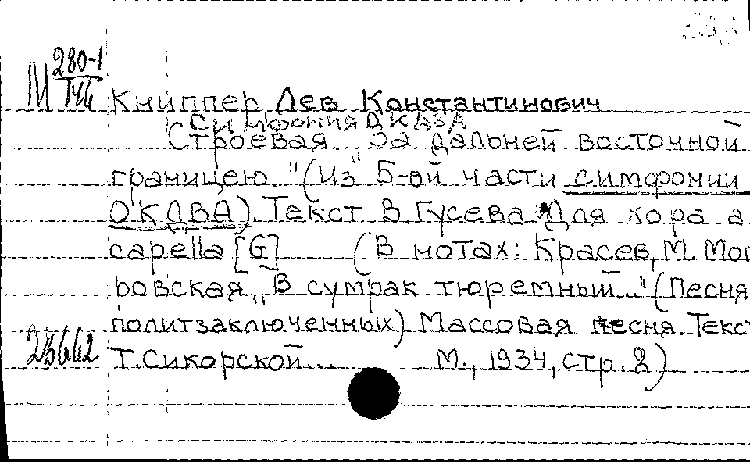 М 280-1
144
Книппер Лев Константинович
Симфония ОКДВА
Строевая "За дальней восточной
границею..." (Из 5-ой части симфонии
О'КДВА). Текст В. Гусева. Для хора a
capella [G] (В нотах: Красев, М. Мос
ровская „В сумрак тюремный..." (Песня
политзаключенных) Массовая песня. Текст
25662 Т. Сикорской... М., 1934, стр. 2)